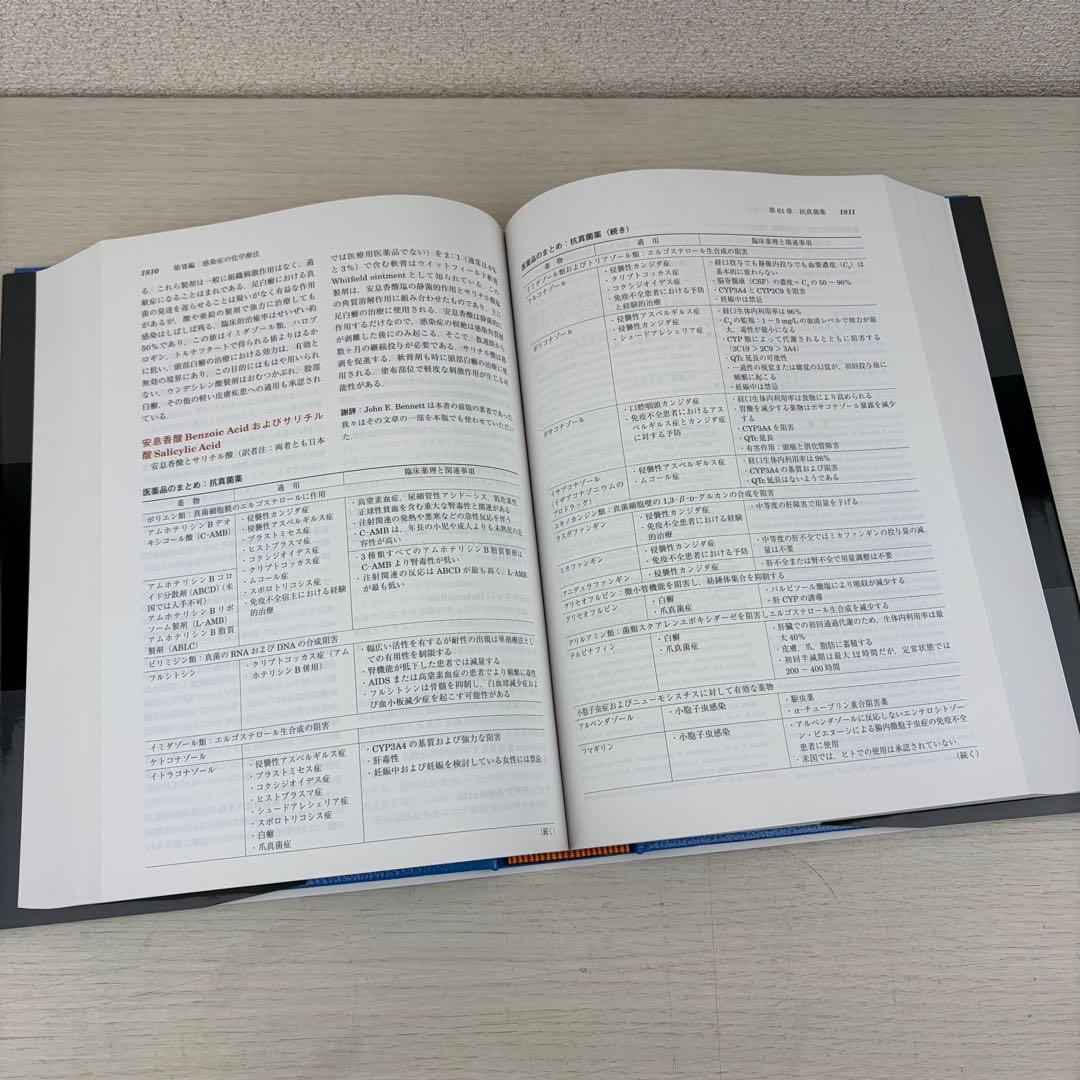 1810 第Ⅶ編 感染症の化学療法
る.これら製剤は一般に組織刺激作用はなく,過
敏症になることはまれである.足白癬における真
菌の発達を遅らせることは疑いがなく有益な作用
があるが,酸や亜鉛の製剤で強力に治療しても
感染はしばしば残る.臨床的治癒率はせいぜい約
50%であり,この値はクレイミダゾール,ハロプ
ロギン,トルナフタートで得られる値よりはるか
に低い.頭部白癬の治療における効力は,有効と
無効の境界にあり,この目的にはもはや用いられ
ない.ウンデシレン酸製剤はおむつかぶれ,股部
白癬,その他の軽い皮膚疾患への適用も承認され
ている.
安息香酸 Benzoic Acid およびサリチル
酸 Salicylic Acid
安息香酸とサリチル酸(訳者注:両者とも日本
では医療用医薬品でない)を2:1(通常は6%
と3%)で含む軟膏はウイットフィールド軟膏
Whitfield ointment として知られている.この
製剤は,安息香酸塩の静菌的作用とサリチル酸塩
の角質溶解作用に組み合わせたものであり,主に
足白癬の治療に使用される.安息香酸は静菌的に
作用するだけなので,感染症の根絶は感染角質層
が剥離した後にのみ起こる.そこで,数週間から
数ヶ月の継続投与が必要である.サリチル酸は落
屑を促進する.軟膏剤も時に頭部白癬の治療に使
用される.塗布部位で軽度な刺激作用が生じる可
能性がある.
謝辞:John E. Bennett は本書の前版の著者であった.
我々はその文章の一部を本版でも使わせていただい
た.
医薬品のまとめ:抗真菌薬
薬 物 適 用 臨床薬理と関連事項
ポリエン類:真菌細胞膜のエルゴステロールに作用
アムホテリシン B デオ
キシコール酸(C-AMB)
・侵襲性カンジダ症
・侵襲性アスペルギルス症
・ブラストミセス症
・ヒストプラスマ症
・コクシジオイデス症
・クリプトコッカス症
・ムコール症
・スポロトリコシス症
・免疫不全宿主における経験
的治療
・高窒素血症,尿細管性アシドーシス,低色素性
正球性貧血を含む重大な腎毒性と関連がある
・注射関連の発熱や悪寒などの急性反応を伴う
・C-AMB は,年長の小児や成人よりも未熟児の忍
容性が高い
アムホテリシン B コロ
イド分散剤(ABCD)(米
国では入手不可)
アムホテリシン B リポ
ソーム製剤(L-AMB)
アムホテリシン B 脂質
製剤(ABLC)
・3 種類すべてのアムホテリシン B 脂質製剤は,
C-AMB より腎毒性が低い
・注射関連の反応は ABCD が最も高く,L-AMB
が最も低い
ピリミジン類:真菌の RNA および DNA の合成阻害
フルシトシン
・クリプトコッカス症(アム
ホテリシン B 併用)
・幅広い活性を有するが耐性の出現は単剤療法とし
ての有用性を制限する
・腎機能が低下した患者では減量する
・AIDS または高窒素血症の患者でより頻繁に毒性
・フルシトシンは骨髄を抑制し,白血球減少症およ
び血小板減少症を起こす可能性がある
イミダゾール類:エルゴステロール生合成の阻害
ケトコナゾール
イトラコナゾール
・侵襲性アスペルギルス症
・ブラストミセス症
・コクシジオイデス症
・ヒストプラスマ症
・シュードアレシェリア症
・スポロトリコシス症
・白癬
・爪真菌症
・CYP3A4 の基質および強力な阻害
・肝毒性
・妊娠中および妊娠を検討している女性には禁忌
(続く)
第 61 章 抗真菌薬 1811
医薬品のまとめ:抗真菌薬(続き)
薬 物 適 用 臨床薬理と関連事項
イミダゾール類およびトリアゾール類:エルゴステロール生合成の阻害
フルコナゾール
・侵襲性カンジダ症
・クリプトコッカス症
・コクシジオイデス症
・免疫不全患者における予防
と経験的治療
・経口投与でも静脈内投与でも血漿濃度(Cp)は
基本的に変わらない
・脳脊髄液(CSF)の濃度=Cp の 50~90%
・CYP3A4 と CYP2C9 を阻害
・妊娠中は禁忌
ボリコナゾール
・侵襲性アスペルギルス症
・侵襲性カンジダ症
・シュードアレシェリア症
・経口生体内利用率は 96%
・Cp の監視:1~5 mg/L の血液レベルで効力が最
大,毒性が最小になる
・CYP 類によって代謝されるとともに阻害する
(2C19 > 2C9 > 3A4)
・QTc 延長の可能性
・一過性の視覚または聴覚の幻覚が,初回投与後に
頻繁に起こる
・妊娠中は禁忌
ポサコナゾール
・口腔咽頭カンジダ症
・免疫不全患者におけるアス
ペルギルス症とカンジダ症
に対する予防
・経口生体内利用率は食物により高められる
・胃酸を減少する薬物はポサコナゾール暴露を減少
する
・CYP3A4 を阻害
・QTc 延長
・有害作用:頭痛と消化管障害
イサブコナゾール
(イサブコナゾニウムの
プロドラッグ)
・侵襲性アスペルギルス症
・ムコール症
・経口生体内利用率は 98%
・CYP3A4 の基質および阻害
・QTc 延長はないようである
エキノカンジン類:真菌細胞壁の 1,3-β-D-グルカンの合成を阻害
カスポファンギン
・侵襲性カンジダ症
・免疫不全患者における経験
的治療
・中等度の肝障害で用量を下げる
ミカファンギン
・侵襲性カンジダ症
・免疫不全患者における予防
・中等度の肝不全ではミカファンギンの投与量の減
量は不要
アニデュラファンギン
・侵襲性カンジダ症
・肝不全または腎不全で用量調整は不要
グリセオフルビン:微小管機能を阻害し,紡錘体集合を抑制する
グリセオフルビン
・白癬
・爪真菌症
・バルビツール酸塩により吸収が減少する
・肝 CYP の誘導
アリルアミン類:菌類スクアレンエポキシダーゼを阻害しエルゴステロール生合成を減少する
テルビナフィン
・白癬
・爪真菌症
・肝臓での初回通過代謝のため,生体内利用率は最
大 40%
・皮膚,爪,脂肪に蓄積する
・初回半減期は最大 12 時間だが,定常状態では
200~400 時間
小胞子虫症およびニューモシスチスに対して有効な薬物
アルベンダゾール
・小胞子虫感染
・駆虫薬
・α-チューブリン重合阻害薬
フマギリン
・小胞子虫感染
・アルベンダゾールに反応しないエンテロシトゾー
ン・ビエヌーシによる腸内微胞子虫症の免疫不全
患者に使用
・米国では,ヒトでの使用は承認されていない.
(続く)